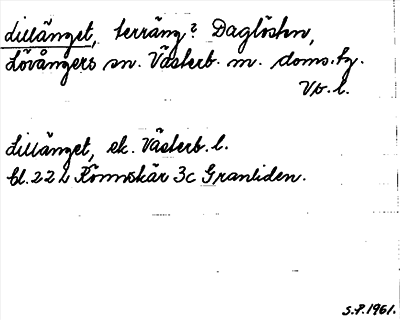 Lillänget, terräng? Daglösten,
Lövångers sn. Västerb. m. doms.tg.
Vb. l.
Lillänget, ek. Västerb. l.
bl. 22 L Rönnskär 3c Granliden.
S.P. 1961.